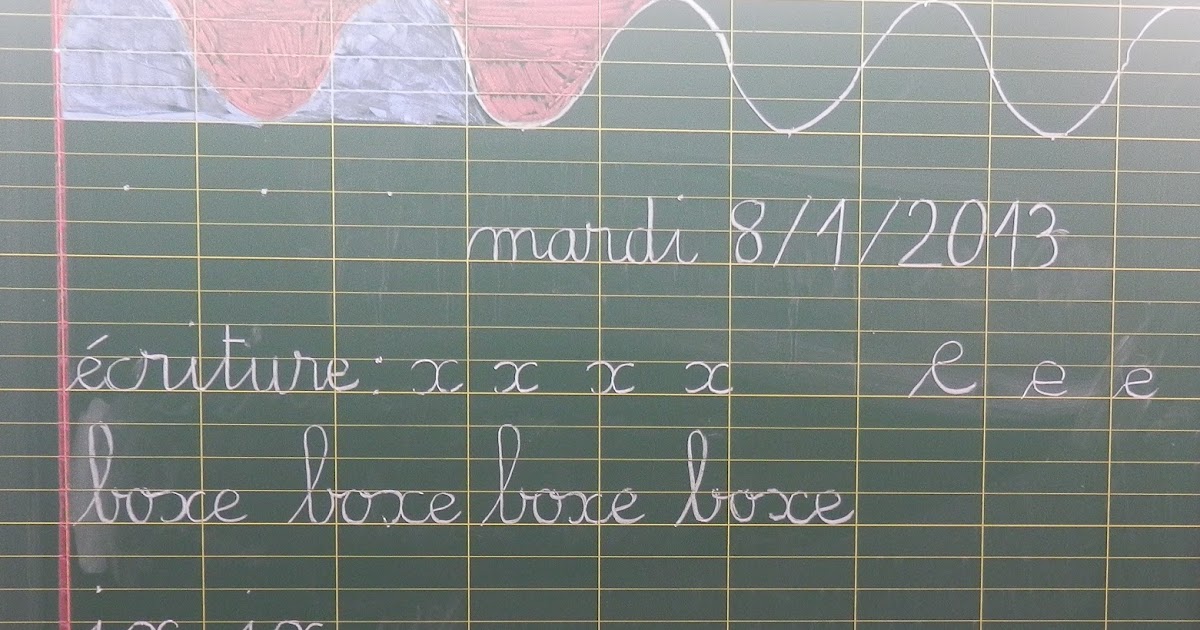 mardi 8/1/2013
écriture: x x x x e e e
boxe boxe boxe boxe